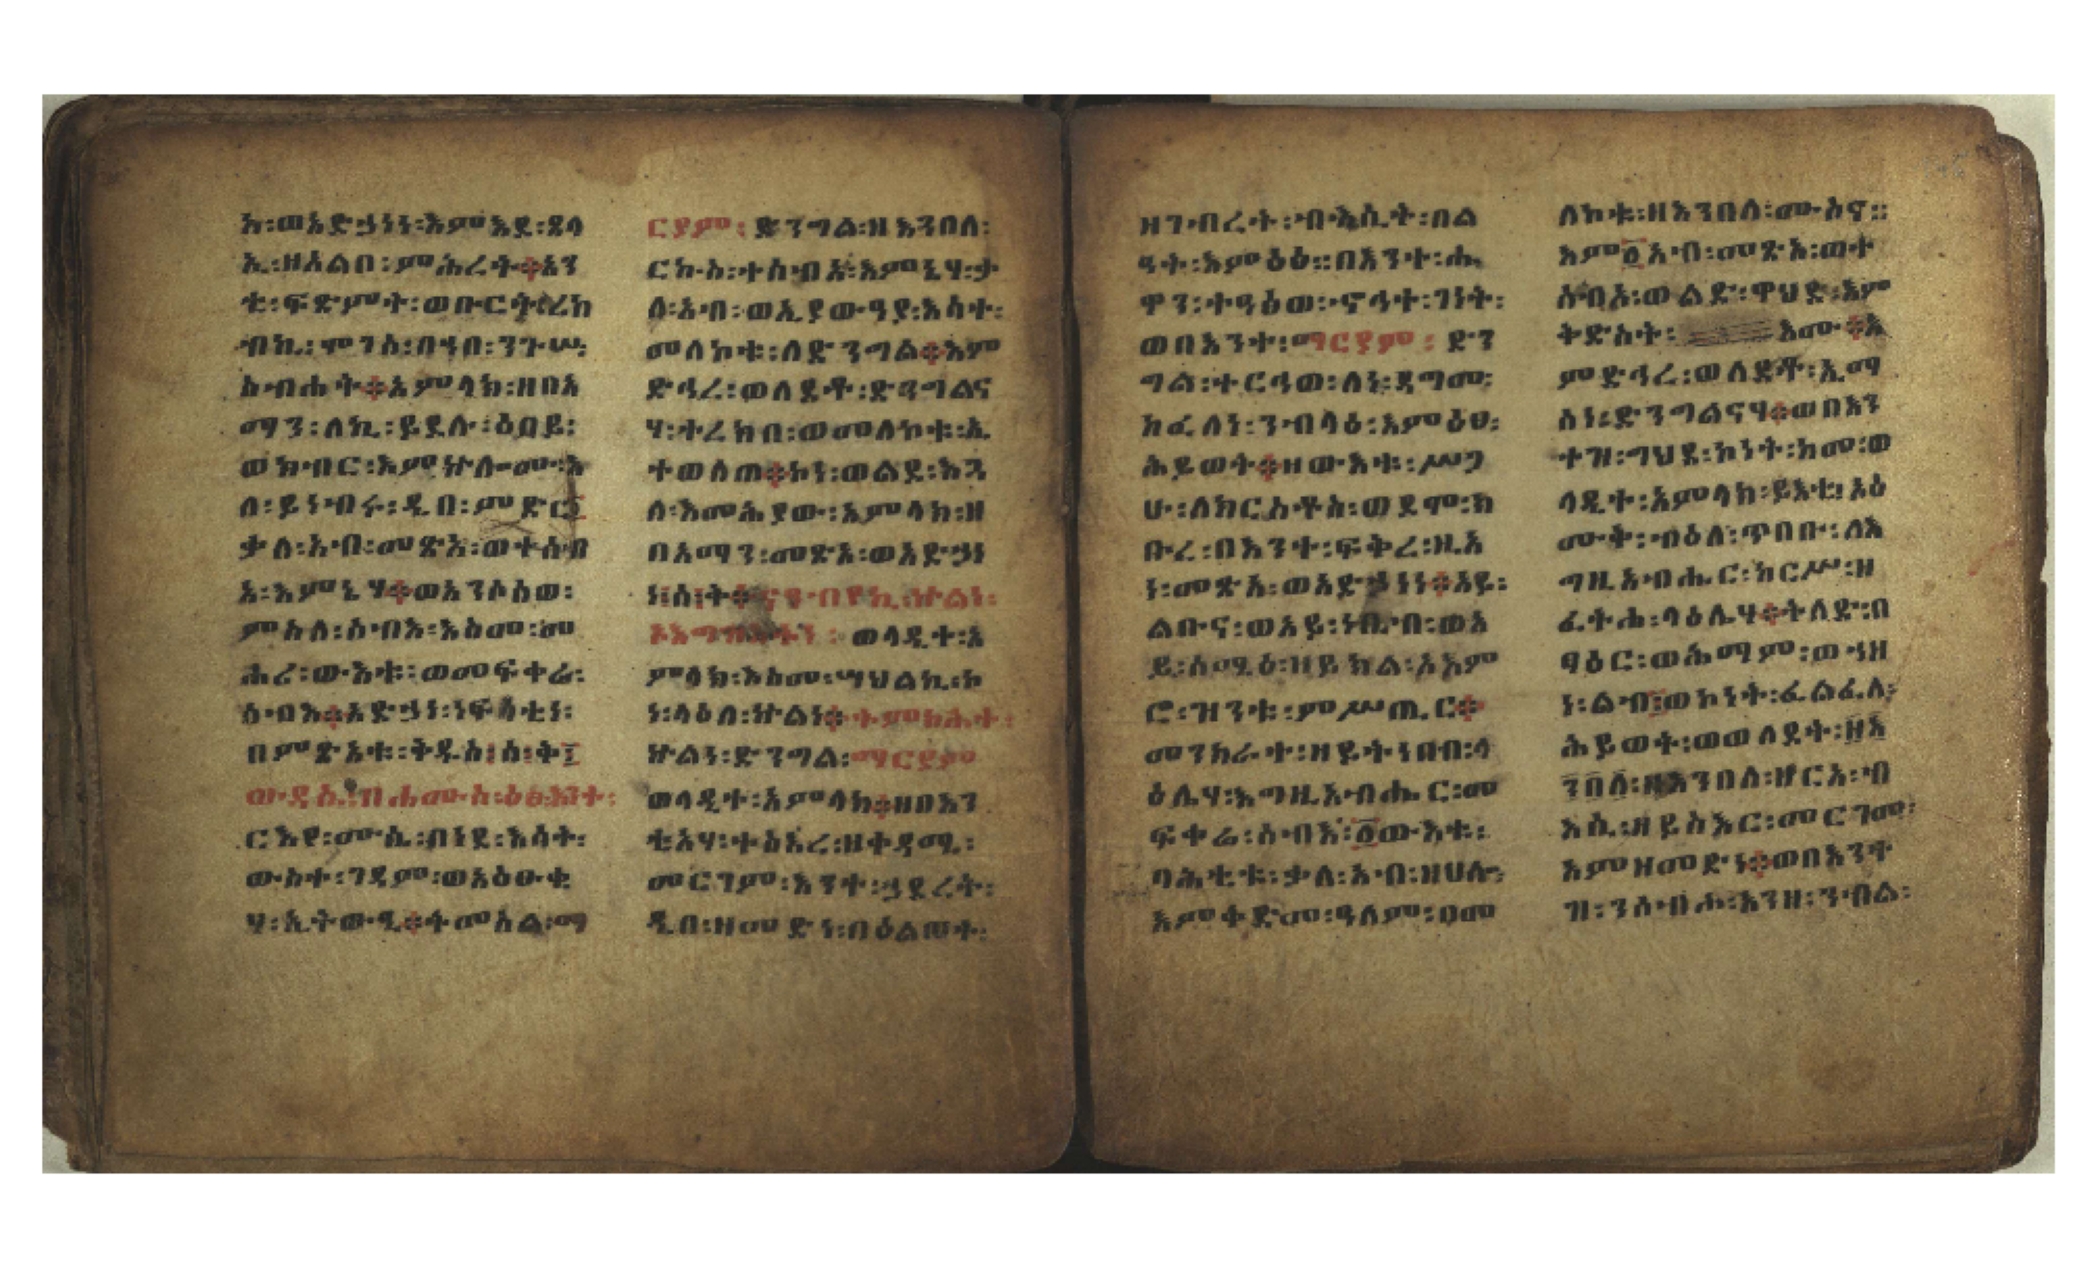 አ፡ወአድኃነነ፡እምእደ፡ጸላ
ኢ፡ዘአልቦ፡ምሕረት፨አን
ቲ፡ፍጽምት፡ወቡርትረከ
ብኪ፡ሞገሰ፡በኀበ፡ንጉሠ፡
ስብሐት፨አምላክ፡ዘበአ
ማን፡ለኪ፡ይደሉ፡ዕበይ፡
ወክብር፡እምኵሎሙ፡እ
ለ፡ይነብሩ፡ዲበ፡ምድር፤
ቃለ፡አብ፡መጽአ፡ወተሰብ
አ፡እምኔሃ፨ወአንሶሰወ፡
ምስለ፡ሰብእ፡እስመ፡መ
ሐሪ፡ውእቱ፡ወመፍቀሬ፡
ሰብእ፨አድኃነ፡ነፍሳቲነ፡
በምጽአቱ፡ቅዱስ፡ስ፡ት፤
ውዳሴ፡ዘሐሙስ፡ዕፅ፡እንተ፡
ርእየ፡ሙሴ፡በነደ፡እሳት፡
ውስተ፡ገዳም፡ወአዕፁቂ
ሃ፡ኢትውዒ፨ትመስል፡ማ
ርያም፡ድንግል፡ዘእንበለ፡
ርኩስ፡ተሰብአ፡እምኔሃ፡ቃ
ለ፡አብ፡ወኢያውዓያ፡እሳተ፡
መለኮቱ፡ለድንግል፨እም
ድኅረ፡ወለደቶ፡ድንግልና
ሃ፡ተረክበ፡ወመለኮቱ፡ኢ
ተወለጠ፨ኮነ፡ወልደ፡እጓ
ለ፡እመሕያው፡አምላክ፡ዘ
በአማን፡መጽአ፡ወአድኃነ
ነ፡ስ፡ት፨ናዓብየኪ፡ኵልነ፡
ኦእግዝእትነ፡ወላዲተ፡አ
ምላክ፡እስመ፡ሣህልኪ፡ኮ
ነ፡ላዕለ፡ኵልነ፨ትምክሕተ፡
ኵልነ፡ድንግል፡ማርያም
ወላዲተ፡አምላክ፨ዘበእን
ቲአሃ፡ተስዕረ፡ዘቀዳሚ፡
መርገም፡እንተ፡ኃደረት፡
ዲበ፡ዘመድነ፡በዕልወት፡
ዘገብረት፡ብእሲት፡በል
ዓት፡እምዕፅ፡፡በእንተ፡ሔ
ዋን፡ተዓፅወ፡ኖኅተ፡ገነት፡
ወበእንተ፡ማርያም፡ድን
ግል፡ተርኅወ፡ለነ፡ዳግመ፡
ከፈለነ፡ንብላዕ፡እምዕፀ፡
ሕይወት፨ዘውእቱ፡ሥጋ
ሁ፡ለክርስቶስ፡ወደሞ፡ክ
ቡረ፡በእንተ፡ፍቅረ፡ዚአ
ነ፡መጽአ፡ወአድኃነነ፨አይ፡
ልቡና፡ወአይ፡ነቢብ፡ወአ
ይ፡ሰሚዕ፡ዘይክል፡አእም
ሮ፡ዝንቱ፡ምሥጢር፨
መንክራተ፡ዘይትነበብ፡ላ
ዕሌሃ፡እግዚአብሔር፡መ
ፍቀሬ፡ሰብእ፡፩ውእቱ፡
ባሕቲቱ፡ቃለ፡አብ፡ዘሀሎ፡
እምቅድመ፡ዓለም፡በመ
ለኮቱ፡ዘእንበለ፡ሙስና፡፡
እም፩አብ፡መጽአ፡ወተ
ሰብአ፡ወልድ፡ዋህድ፡እም
ቅድስት፡እሙ፨እ
ምድኅረ፡ወለደቶ፡ኢማ
ሰነ፡ድንግልናሃ፨ወበእን
ተዝ፡ግህደ፡ኮነት፡ከመ፡ወ
ላዲተ፡አምላክ፡ይእቲ፡ዕ
ሙቅ፡ብዕለ፡ጥበቡ፡ለእ
ግዚአብሔር፡ከርሥ፡ዘ
ፈትሐ፡ላዕሌሃ፨ትለድ፡በ
ፃዕር፡ወሕማም፡ወኀዘ
ነ፡ልብ፡ወኮነት፡ፈልፈለ፡
ሕይወት፡ወወለደት፡ዘእ
ንበለ፡ዘእንበለ፡ዘርአ፡ብ
እሲ፡ዘይስእር፡መርገመ፡
እምዘመድነ፨ወበእንተ
ዝ፡ንሰብሖ፡እንዘ፡ንብል፡